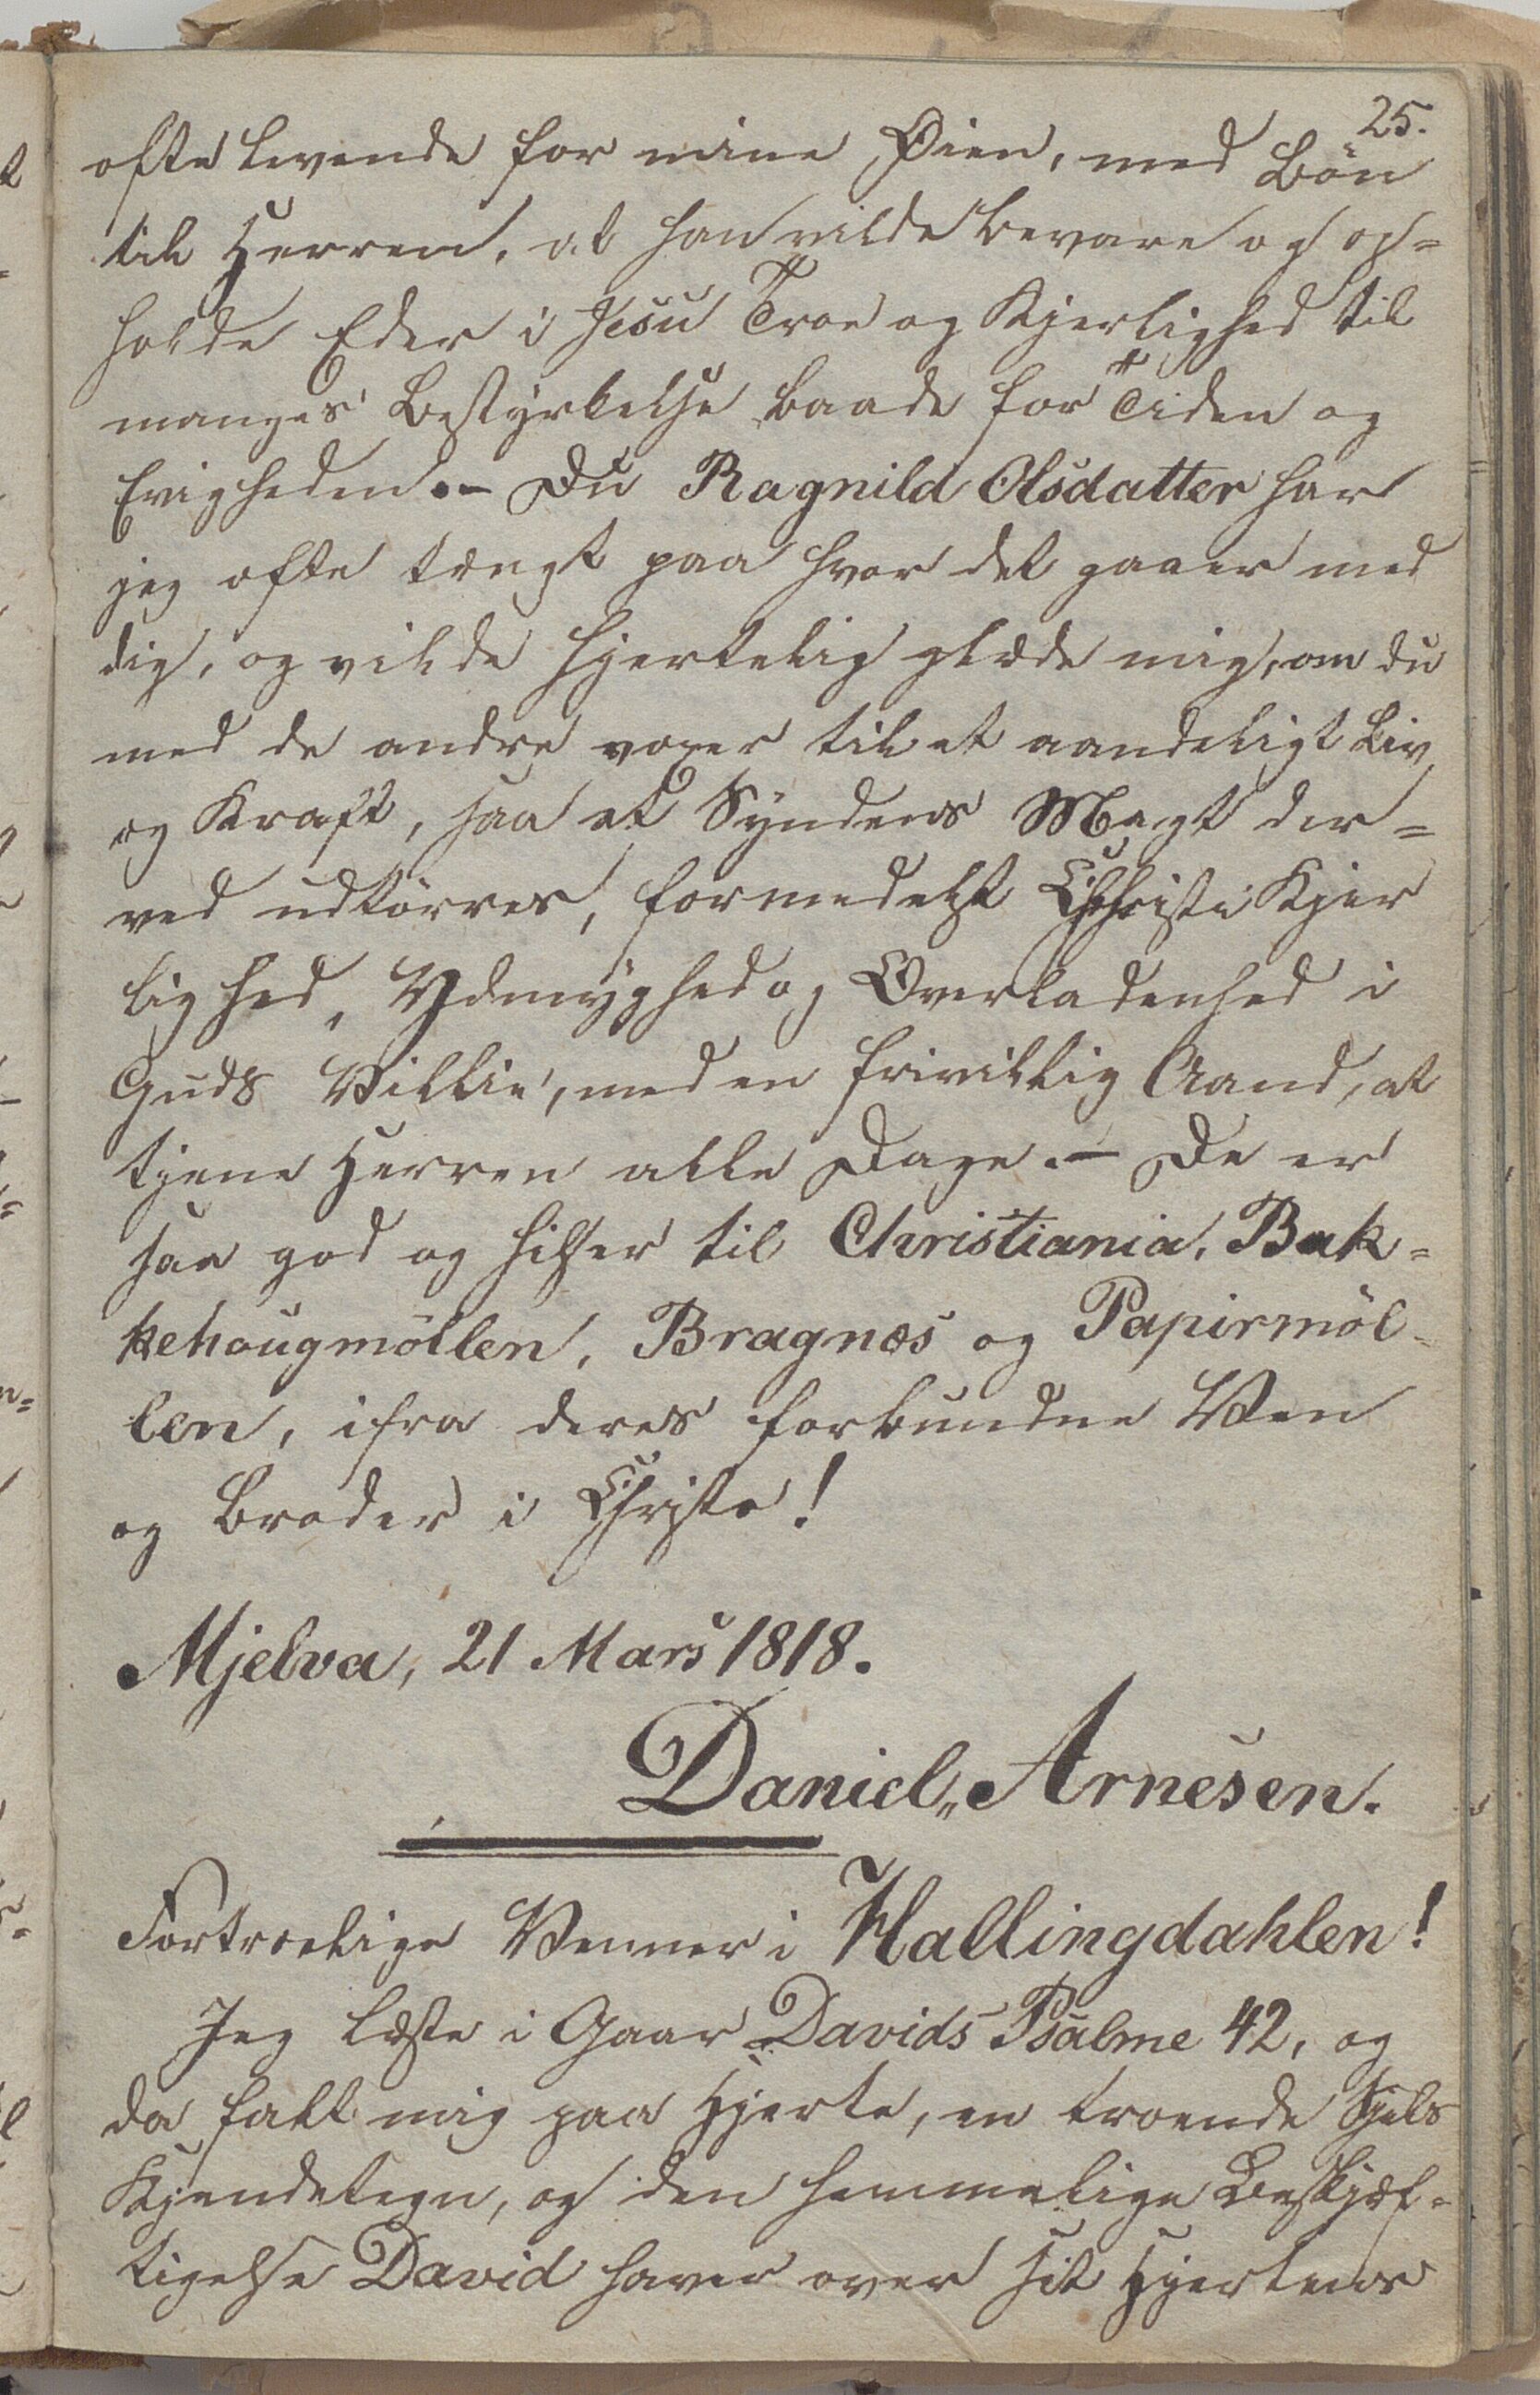 25.
ofte levende for mine Øien, med Bön
til Herren, at han vilde bevare og op=
holde Eder i Jesu Troe og Kjerlighed til
manges Bestyrkelse baade for Tiden og
Evigheden. – Du Ragnild Olsdatter har
jeg ofte tængt paa hvor det gaaer med
dig, og vilde hjertelig glæde mig, om du
med de andre voxer til et aandeligt Liv
og Kraft, saa at Syndens Magt der=
ved udtörres, formedelst Christi Kjer
lighed, Ydmyghed og Overladenhed i
Guds Villie, med en frivillig Aand, at
tjene Herren alle Dage. – De er
saa god og hilser til Christiania, Bak=
kehougmöllen, Bragnæs og Papirmöl=
len, ifra deres forbundne Ven
og Broder i Christo!
Mjelva, 21 Mars 1818.
Daniel„ Arnesen.
Fortroelige Venner i Hallingdahlen!
Jeg læste i Gaar Davids Psalme 42, og
da falt mig paa Hjerte, en troende Sjels
Kjendetegn, og den hemmelige Beskjæf=
tigelse David haver over sit Hjertens